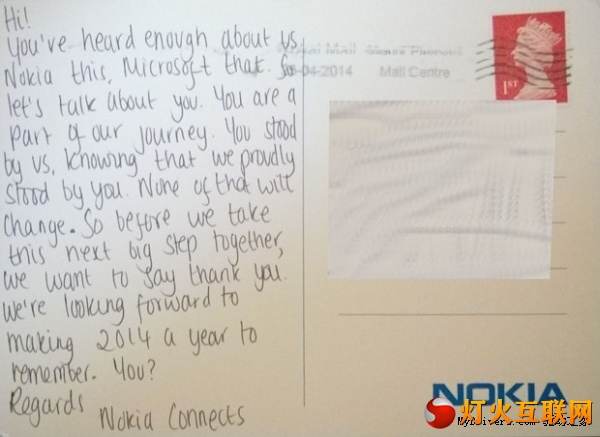 Hi!
You've heard enough about us,
Nokia this, Microsoft that. So
let's talk about you. You are a
part of our journey. You stood
by us, knowing that we proudly
stood by you. None of that will
change. So before we take
this next big step together,
we want to say thank you.
We're looking forward to
making 2014 a year to
remember. You?
Regards
Nokia Connects
Royal Mail
-04-2014 Mail Centre
1ST
NOKIA
灯火互联网
MyDrivers.com